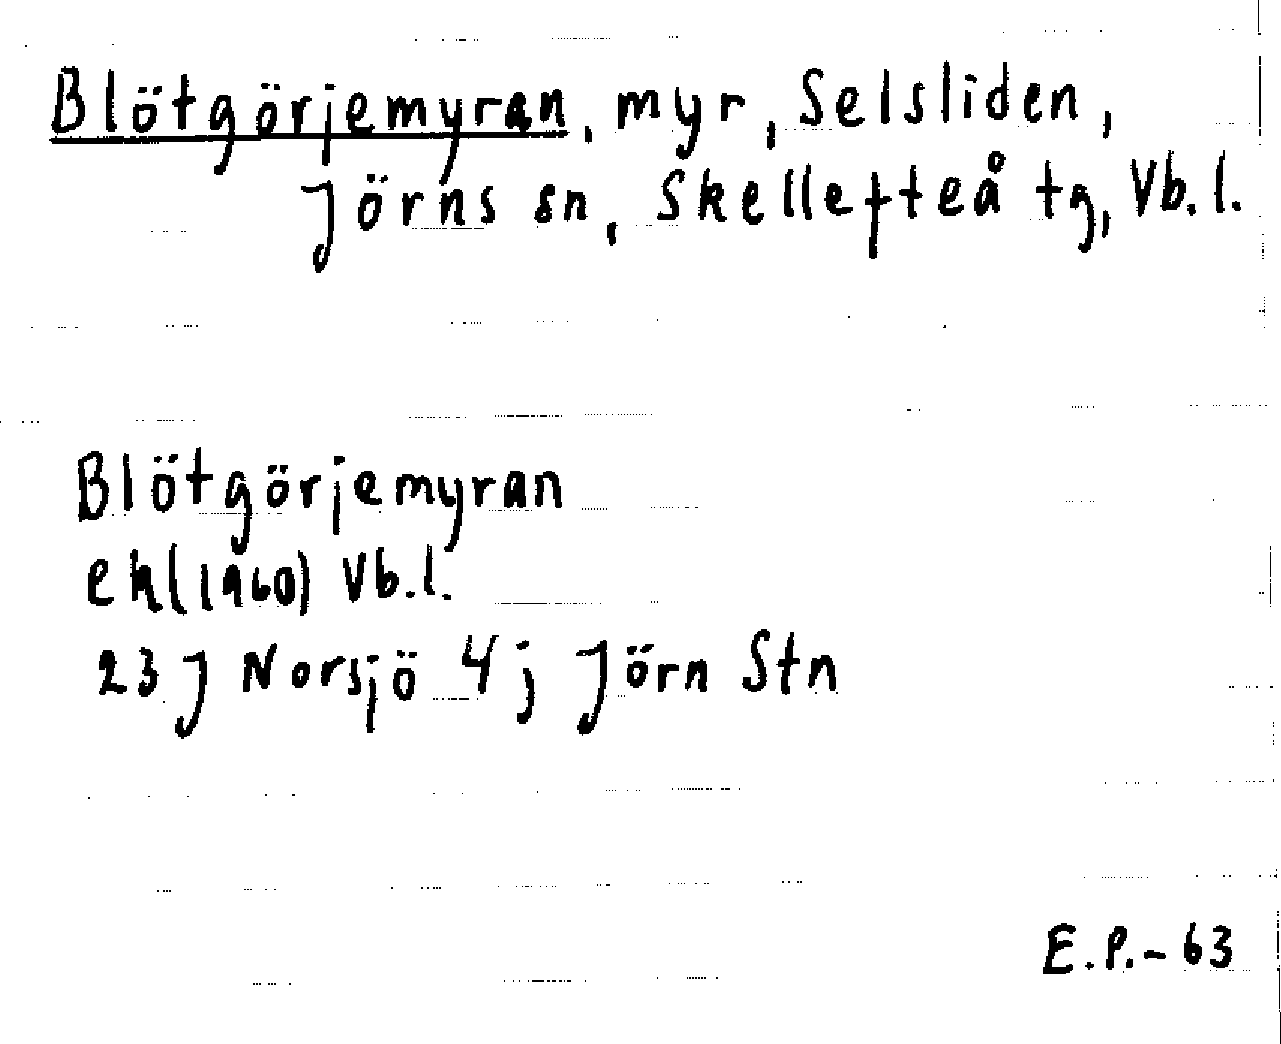 Blötgörjemyran, myr, Selsliden,
Jörns sn, Skellefteå tg, Vb. l.
Blötgörjemyran
ek(1960) Vb.l.
23 J Norsjö 4 j Jörn Stn
E.P.-63